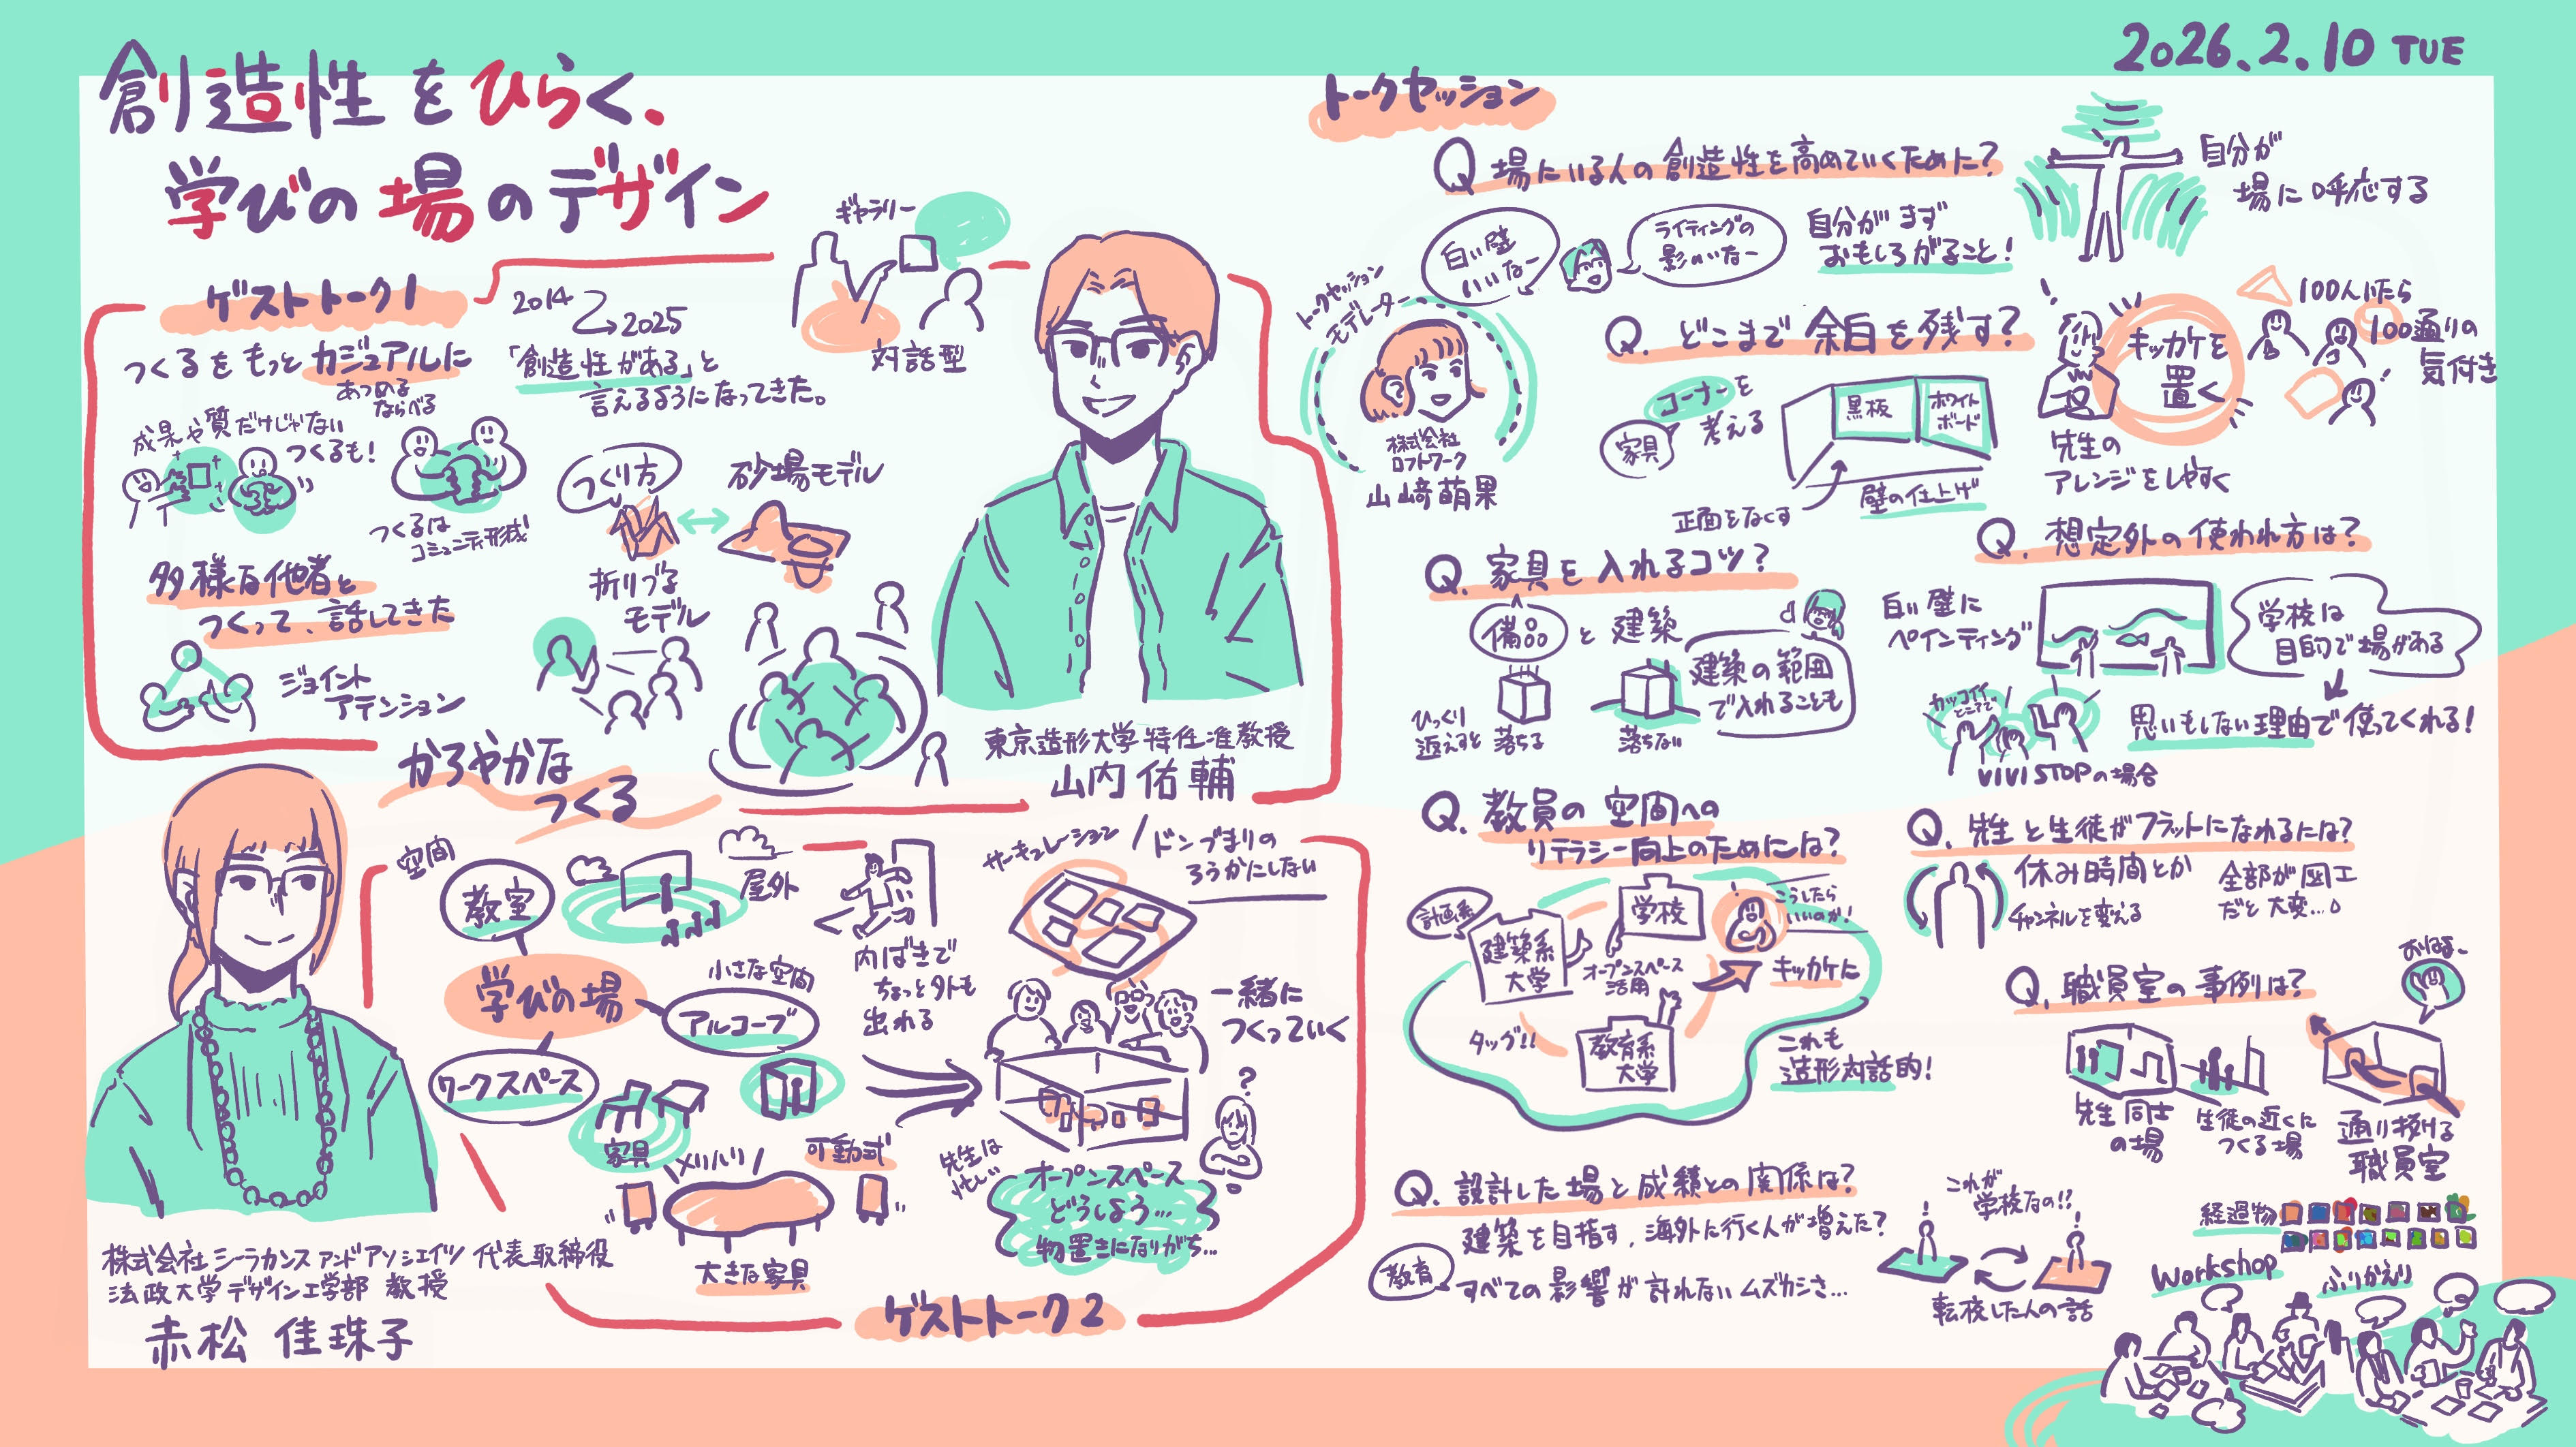 創造性をひらく、
学びの場のデザイン
2026.2.10 TUE
ゲストトーク1
つくるをもっとカジュアルに
あつめる
ならべる
成果や質だけじゃない
つくるも!
つくるは
コミュニティ形成
多様な他者と
つくって、話してきた
ジョイント
アテンション
2014
2025
「創造性がある」と
言えるようになってきた。
ギャラリー
対話型
つくり方
砂場モデル
折りづる
モデル
かろやかな
つくる
東京造形大学 特任准教授
山内 佑輔
空間
教室
屋外
学びの場
小さな空間
アルコーブ
ワークスペース
家具
内ばきで
ちょっと外も
出れる
サーキュレーション
ドンづまりの
ろうかにしない
一緒に
つくっていく
メリハリ
可動式
大きな家具
先生は
忙しい
?
オープンスペース
どうしよう…
物置きになりがち…
ゲストトーク2
株式会社 シーラカンス アンド アソシエイツ 代表取締役
法政大学 デザイン工学部 教授
赤松 佳珠子
トークセッション
トークセッション
モデレーター
株式会社
ロフトワーク
山﨑萌果
Q 場にいる人の創造性を高めていくために?
白い壁
いいなー
ライティングの
影いいなー
自分がまず
おもしろがること!
自分が
場に呼応する
Q. どこまで余白を残す?
コーナーを
考える
家具
黒板
ホワイト
ボード
正面をなくす
壁の仕上げ
キッカケを
置く
先生の
アレンジをしやすく
100人いたら
100通りの
気付き
Q. 家具を入れるコツ?
備品と建築
ひっくり
返えすと落ちる
落ちない
建築の範囲
で入れることも
Q. 想定外の使われ方は?
白い壁に
ペインティング
学校は
目的で場がある
カッコイイ
とこでて
思いもしない理由で使ってくれる!
VIVISTOPの場合
Q. 教員の空間への
リテラシー向上のためには?
計画系
建築系
大学
学校
オープンスペース
活用
こうしたら
いいのか!
キッカケに
タッグ!!
教育系
大学
これも
造形対話的!
Q. 先生と生徒がフラットになれるには?
休み時間とか
チャンネルを変える
全部が図工
だと大変…
Q. 職員室の事例は?
おはよー
先生同士
の場
生徒の近くに
つくる場
通り抜ける
職員室
Q. 設計した場と成績との関係は?
建築を目指す、海外に行く人が増えた?
教育
すべての影響が計れないムズカシさ…
これが
学校なの!?
転校した人の話
経過物
Workshop
ふりかえり